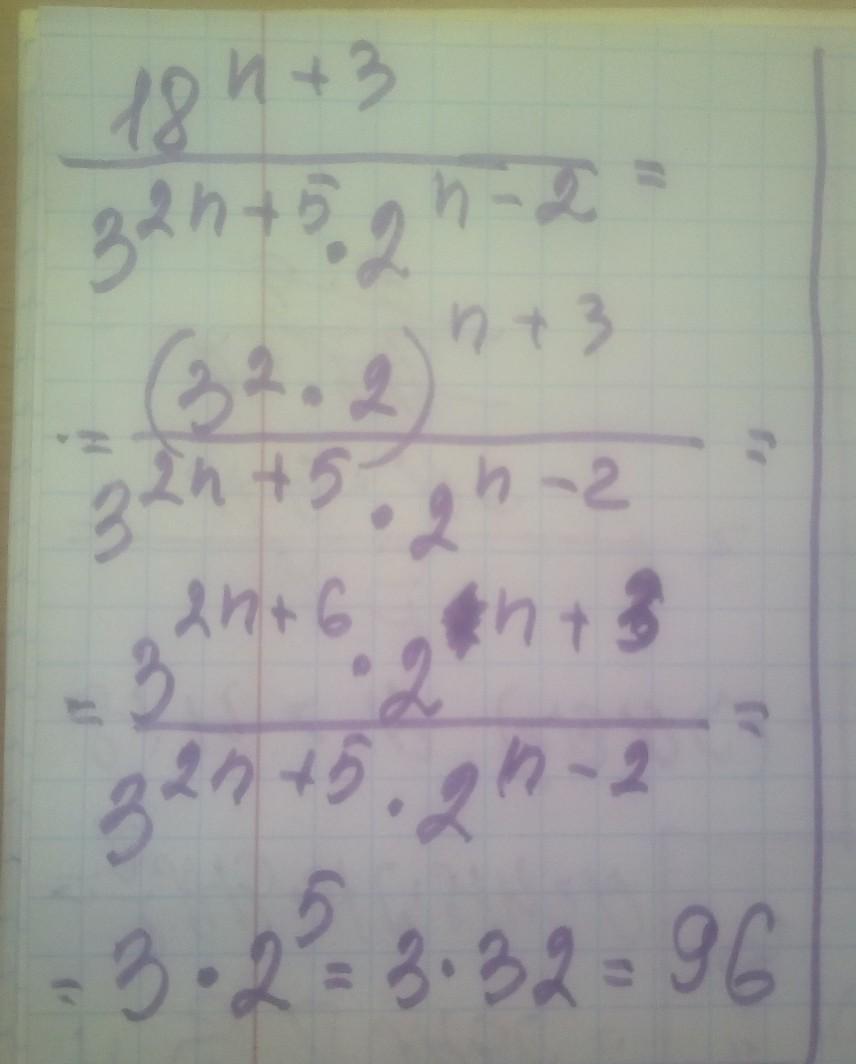 18^{n+3}
3^{2n+5} · 2^{n-2} =
= (3^2 · 2)^{n+3} =
3^{2n+5} · 2^{n-2}
= 3^{2n+6} · 2^{n+3} =
3^{2n+5} · 2^{n-2}
= 3 · 2^5 = 3 · 32 = 96